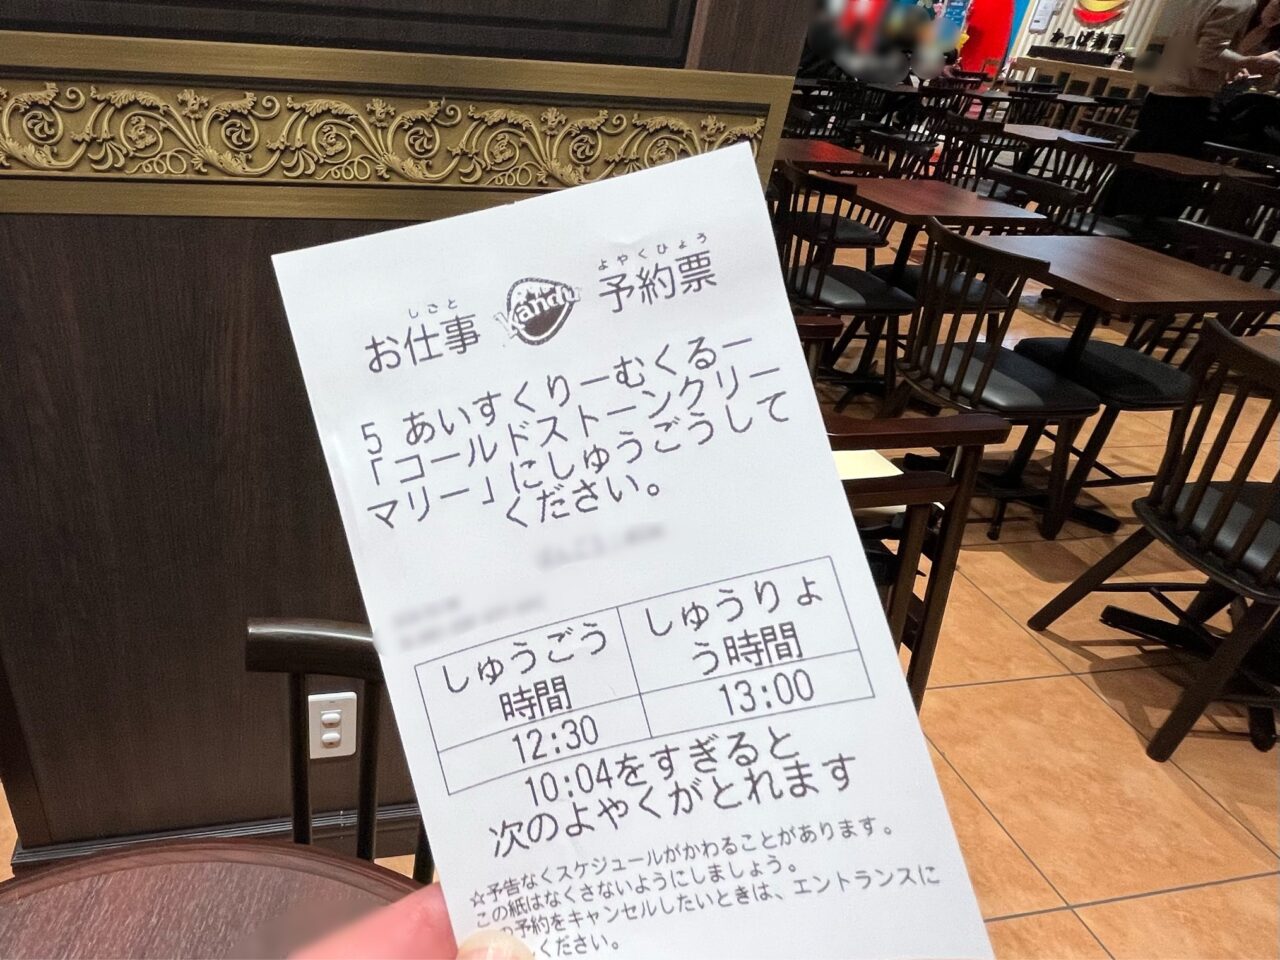 しごと
よやくひょう
お仕事 Kandu 予約票
5 あいすくりーむくるー
「コールドストーンクリー
マリー」にしゅうごうして
ください。
しゅうごう
時間
しゅうりょ
う時間
12:30
13:00
10:04をすぎると
次のよやくがとれます
☆予告なくスケジュールがかわることがあります。
この紙はなくさないようにしましょう。
の予約をキャンセルしたいときは、エントランスに
ください。